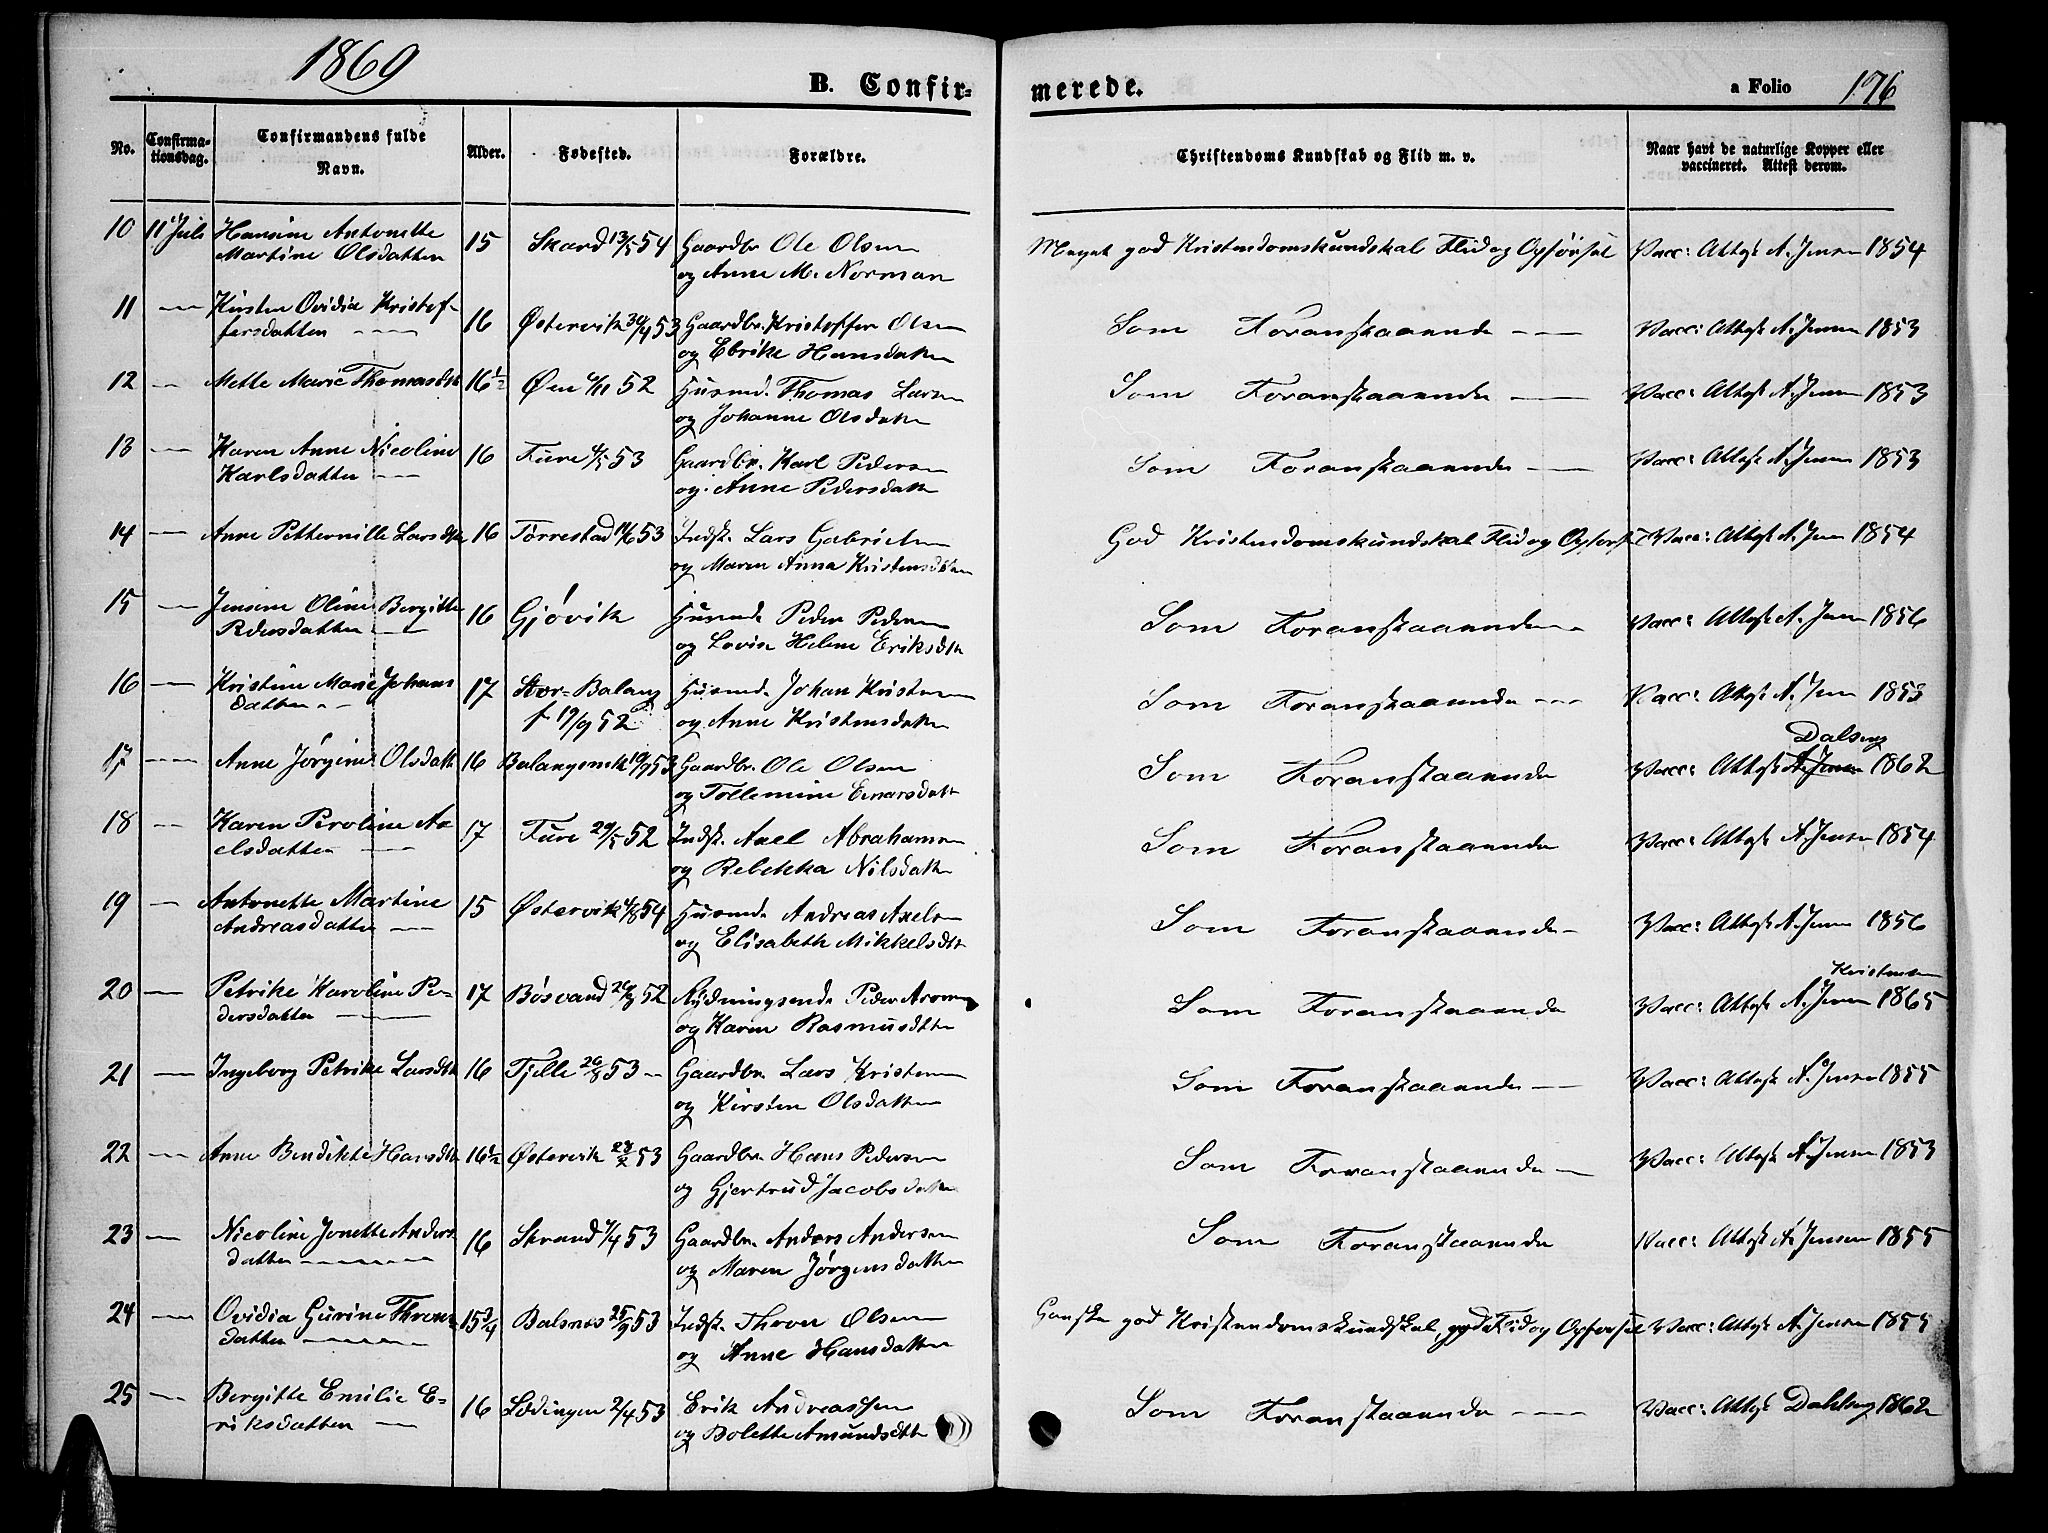 1869
B. Confirmerede.
a Folio 176
No. Confirmationsdag. Confirmandens fulde Navn. Alder. Fødested. Forældre. Christendoms Kundskab og Flid m. v. Naar havt de naturlige Kopper eller vaccineret. Attest derom.
10 11 Juli Hansine Antonette 15 Skard 13/5 54 Gaardbr. Ole Olsen Meget god Kristendomskundskab Flid og Opførsel Vacc: Attest A. Jensen 1854
Martine Olsdatter og Anne M. Norman
11 — Kirsten Ovidia Kristof- 16 Østervik 53 Gaardbr. Kristoffer Olsen Som Foranstaaende — Vacc: Attest A. Jensen 1853
fersdatter — og Ebrike Hansdatter
12 — Mette Marie Thomasdtr 16½ Øen 52 Husmd. Thomas Larsen Som Foranstaaende — Vacc: Attest A. Jensen 1853
og Johanne Olsdatter
13 — Karen Anne Nicoline 16 Fure 4/5 53 Gaardbr. Karl Pedersen Som Foranstaaende — Vacc: Attest A. Jensen 1853
Karlsdatter — og Anne Pedersdatter
14 — Anne Petternille Larsdtr 16 Tørrestad 53 Indst. Lars Gabrielsen God Kristendomskundskab Flid og Opførsel Vacc: Attest A. Jensen 1854
og Maren Anna Kristensdatter
15 — Jensine Oline Bergitte 16 Gjøvik Husmd. Peder Pedersen Som Foranstaaende — Vacc: Attest A. Jensen 1856
Pedersdatter — og Lovise Helene Eriksdtr
16 — Kristine Marie Johans 17 Stor-Balang Husmd. Johan Kristensen Som Foranstaaende — Vacc: Attest A. Jensen 1853
datter — f 19/9 52 og Anne Kristensdatter
17 — Anne Jørgine Olsdatter 16 53 Gaardbr. Ole Olsen Som Foranstaaende Vacc: Attest Dalseng 1862
og Tollemine Einarsdatter
18 — Karen Peroline Ax 17 Fure 29/5 52 Indst. Axel Abrahamsen Som Foranstaaende Vacc: Attest A. Jensen 1854
elsdatter — og Rebekka Nilsdatter
19 — Antonette Martine 15 Østervik 4/8 54 Husmd. Andreas Axelsen Som Foranstaaende — Vacc: Attest A. Jensen 1856
Andreasdatter — og Elisabeth Mikkelsdtr
20 — Petrike Karoline Pe- 17 Bøsvand 52 Rydningsmd. Peder Aronsen Som Foranstaaende Vacc: Attest Kristensen 1865
dersdatter — og Karen Rasmusdtr
21 — Ingeborg Petrike Larsdtr 16 Fjelle 26/8 53 — Gaardbr. Lars Kristensen Som Foranstaaende — Vacc: Attest A. Jensen 1855
og Kirsten Olsdatter
22 — Anne Bendikte Hansdtr 16½ Østervik 23/2 53 Gaardbr. Hans Pedersen Som Foranstaaende — Vacc: Attest A. Jensen 1853
og Gjertrud Jacobsdatter
23 — Nicoline Jonette Anders 16 Strand 7/4 53 Gaardbr. Anders Andersen Som Foranstaaende Vacc: Attest A. Jensen 1855
datter — og Maren Jørgensdatter
24 — Ovidia Gurine Thorsen 15¾ Balsnes 25/9 53 Indst. Thover Olsen Ganske god Kristendomskundskab, god Flid og Opførsel Vacc: Attest A. Jensen 1855
datter — og Anne Hansdatter
25 — Bergitte Emilie E- 16 Lødingen 2/4 53 Erik Andreassen Som Foranstaaende — Vacc: Attest Dahlseng 1862
riksdatter — og Bolette Amundsdtr